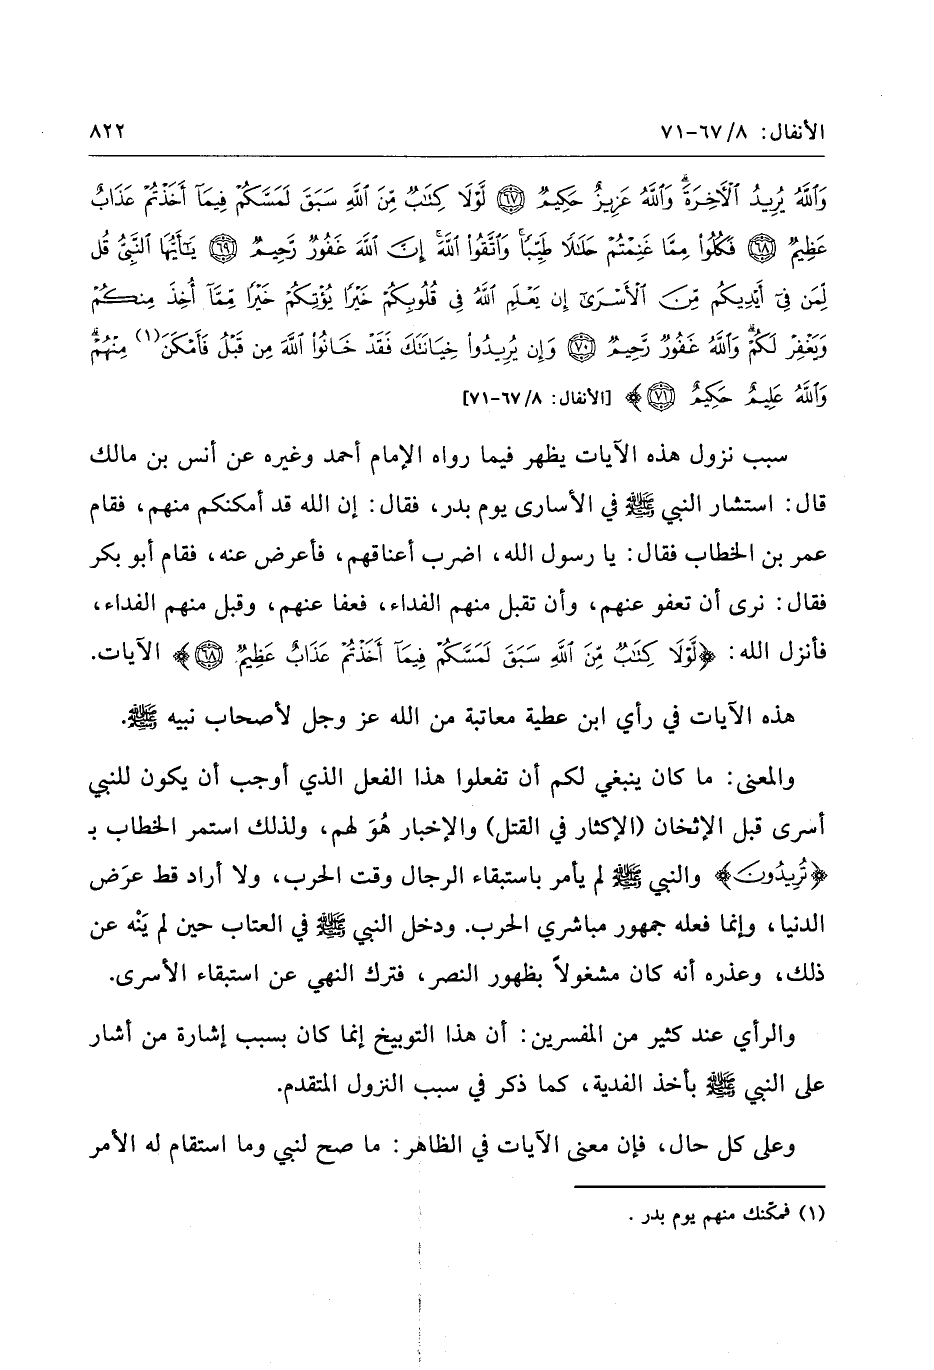 الأنفال: ٨/ ٦٧-٧١
٨٢٢
وَٱللَّهُ يُرِيدُ ٱلْأَخِرَةَۗ وَٱللَّهُ عَزِيزٌ حَكِيمٌ ﴿٦٧﴾ لَّوْلَا كِتَٰبٌ مِّنَ ٱللَّهِ سَبَقَ لَمَسَّكُمْ فِيمَآ أَخَذْتُمْ عَذَابٌ
عَظِيمٌ ﴿٦٨﴾ فَكُلُوا۟ مِمَّا غَنِمْتُمْ حَلَٰلًا طَيِّبًاۚ وَٱتَّقُوا۟ ٱللَّهَۚ إِنَّ ٱللَّهَ غَفُورٌ رَّحِيمٌ ﴿٦٩﴾ يَٰٓأَيُّهَا ٱلنَّبِىُّ قُل
لِّمَن فِىٓ أَيْدِيكُم مِّنَ ٱلْأَسْرَىٰٓ إِن يَعْلَمِ ٱللَّهُ فِى قُلُوبِكُمْ خَيْرًا يُؤْتِكُمْ خَيْرًا مِّمَّآ أُخِذَ مِنكُمْ
وَيَغْفِرْ لَكُمْۗ وَٱللَّهُ غَفُورٌ رَّحِيمٌ ﴿٧٠﴾ وَإِن يُرِيدُوا۟ خِيَانَتَكَ فَقَدْ خَانُوا۟ ٱللَّهَ مِن قَبْلُ فَأَمْكَنَ(١) مِنْهُمْۗ
وَٱللَّهُ عَلِيمٌ حَكِيمٌ ﴿٧١﴾﴾ [الأنفال: ٨/ ٦٧-٧١]
سبب نزول هذه الآيات يظهر فيما رواه الإمام أحمد وغيره عن أنس بن مالك
قال: استشار النبي ﷺ في الأسارى يوم بدر، فقال: إن الله قد أمكنكم منهم، فقام
عمر بن الخطاب فقال: يا رسول الله، اضرب أعناقهم، فأعرض عنه، فقام أبو بكر
فقال: نرى أن تعفو عنهم، وأن تقبل منهم الفداء، فعفا عنهم، وقبل منهم الفداء،
فأنزل الله: ﴿لَّوْلَا كِتَٰبٌ مِّنَ ٱللَّهِ سَبَقَ لَمَسَّكُمْ فِيمَآ أَخَذْتُمْ عَذَابٌ عَظِيمٌ ﴿٦٨﴾﴾ الآيات.
هذه الآيات في رأي ابن عطية معاتبة من الله عز وجل لأصحاب نبيه ﷺ.
والمعنى: ما كان ينبغي لكم أن تفعلوا هذا الفعل الذي أوجب أن يكون للنبي
أسرى قبل الإثخان (الإكثار في القتل) والإخبار هُوَ لهم، ولذلك استمر الخطاب بـ
﴿تُرِيدُونَ﴾ والنبي ﷺ لم يأمر باستبقاء الرجال وقت الحرب، ولا أراد قط عرَض
الدنيا، وإنما فعله جمهور مباشري الحرب. ودخل النبي ﷺ في العتاب حين لم يَنْه عن
ذلك، وعذره أنه كان مشغولاً بظهور النصر، فترك النهي عن استبقاء الأسرى.
والرأي عند كثير من المفسرين: أن هذا التوبيخ إنما كان بسبب إشارة من أشار
على النبي ﷺ بأخذ الفدية، كما ذكر في سبب النزول المتقدم.
وعلى كل حال، فإن معنى الآيات في الظاهر: ما صح لنبي وما استقام له الأمر
(١) فمكّنك منهم يوم بدر .